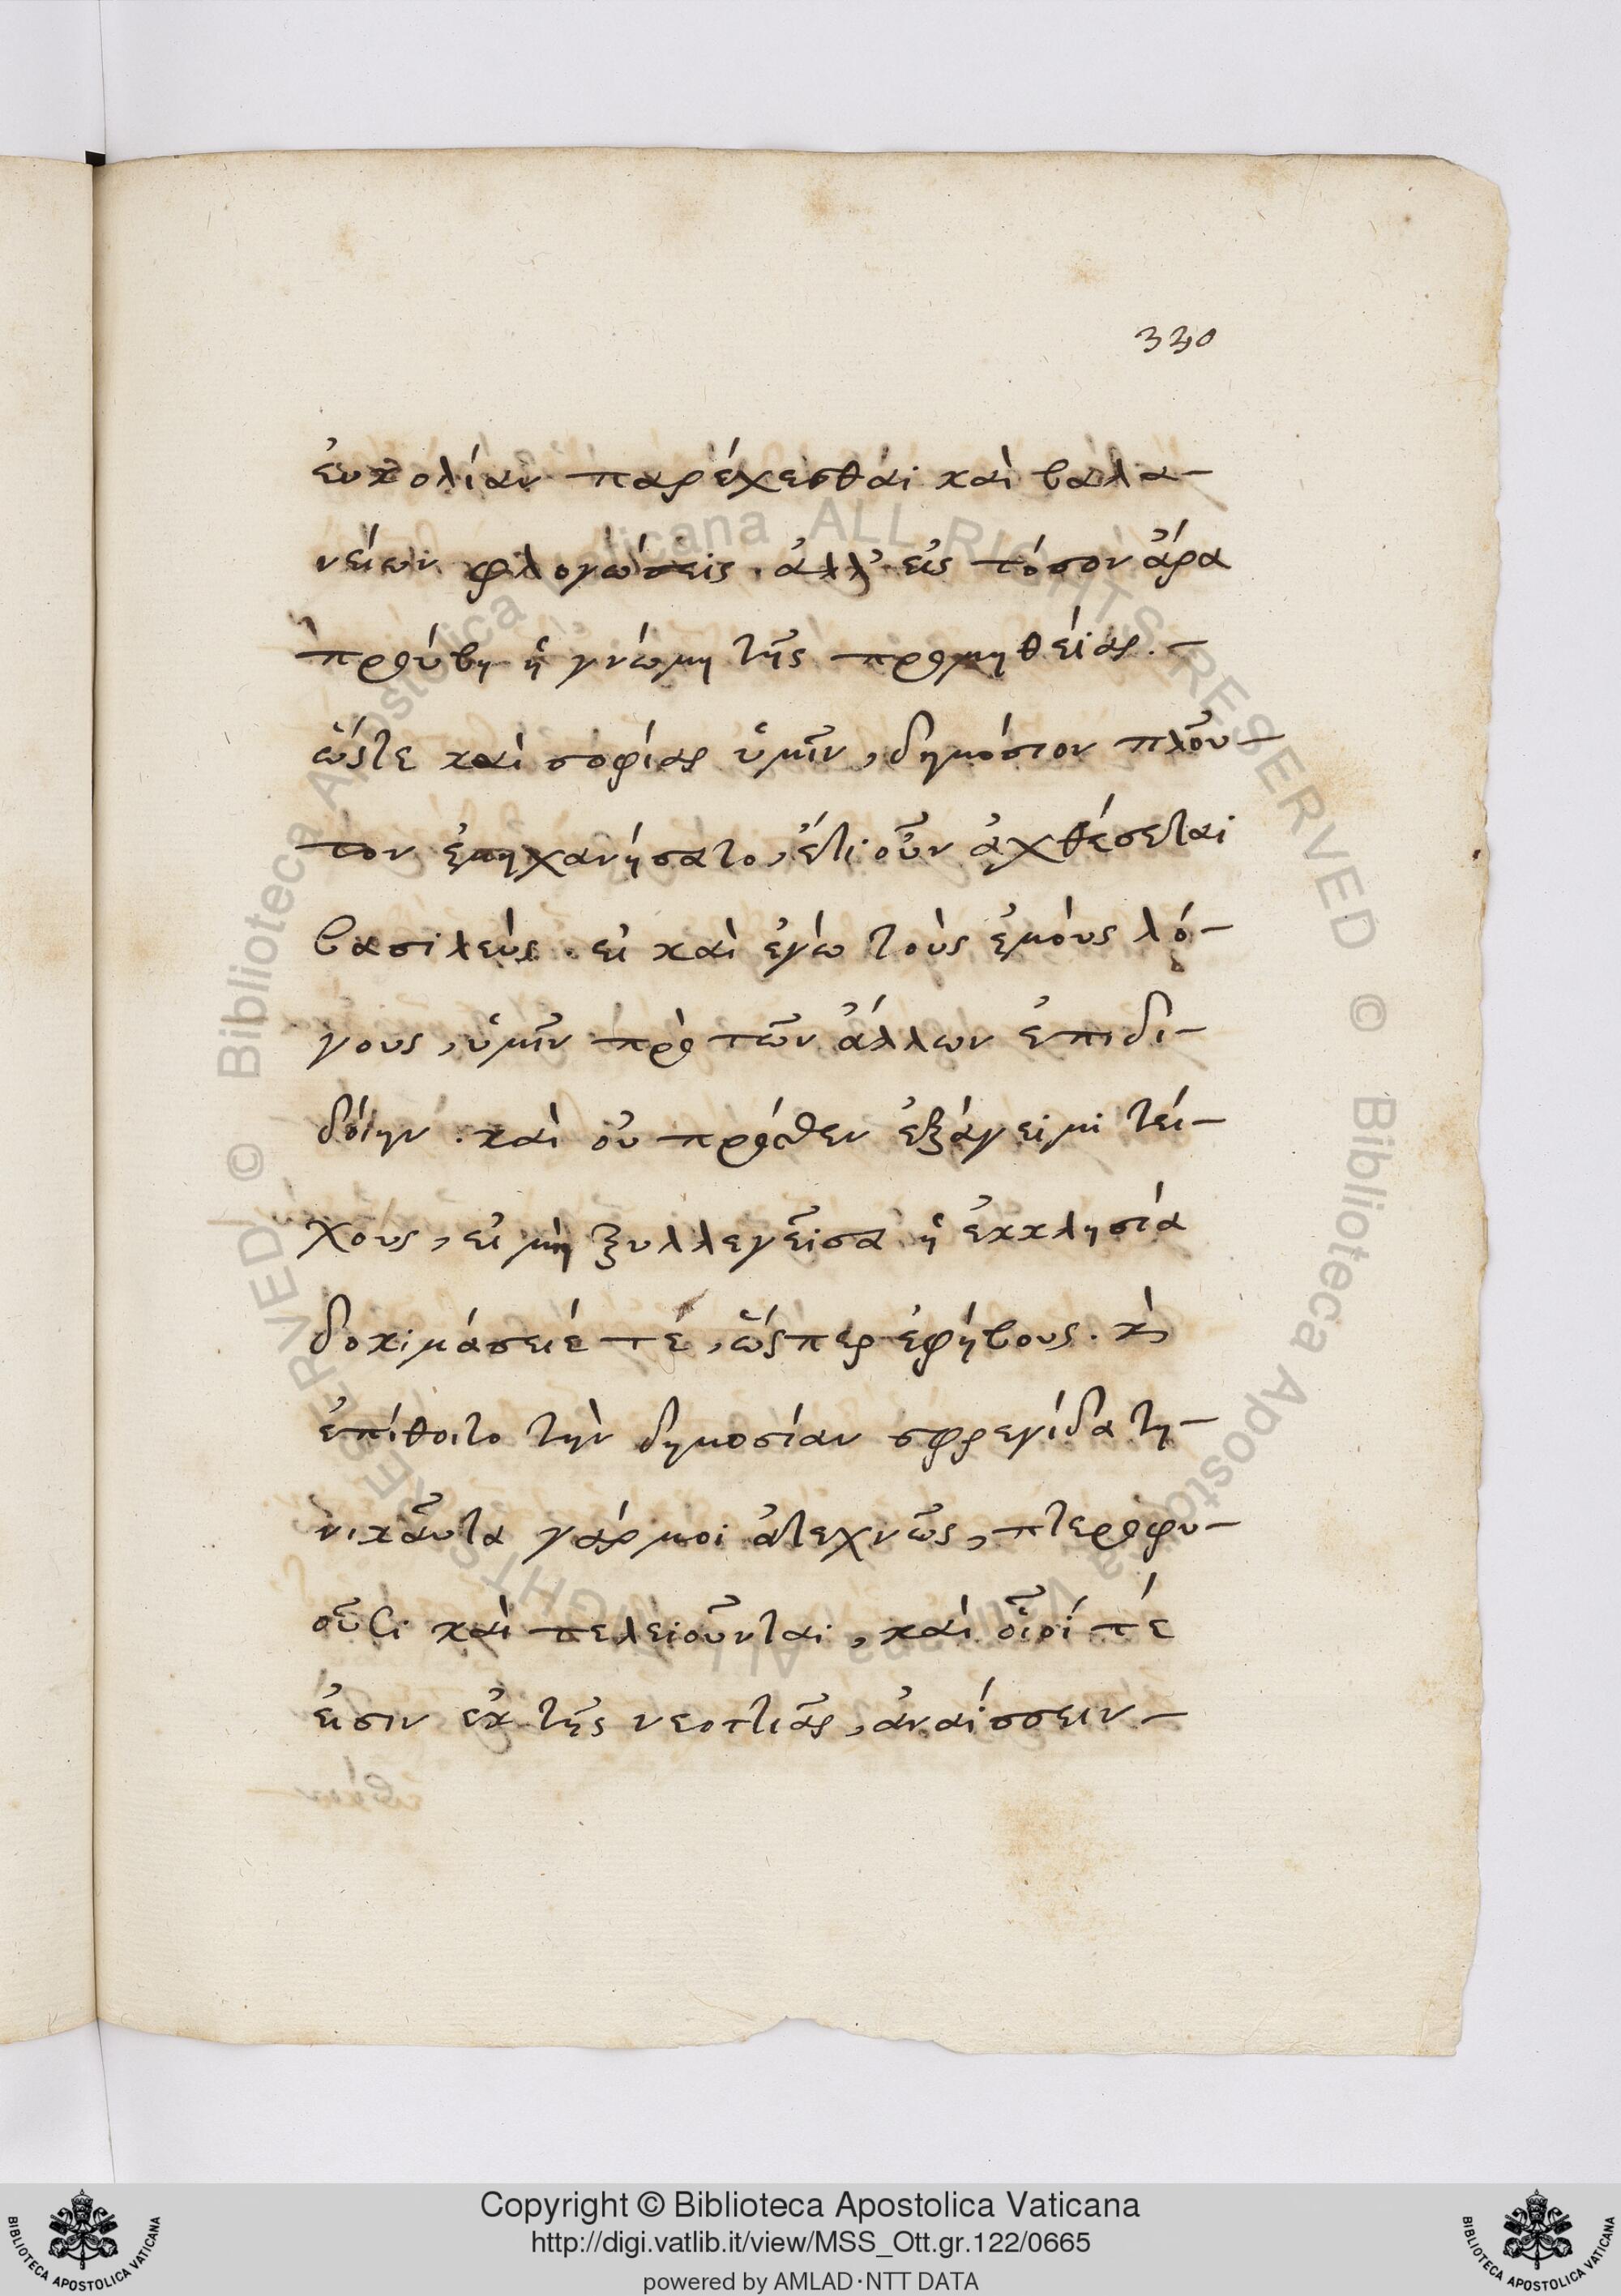 330
ἐυκολίαν παρέχεσθαι καὶ βαλα-
νείων φλογώσεις. ἀλλ' εἰς τόσον ἄρα
προύβη ἡ γνώμη τῆς προμηθείας. -
ὥστε καὶ σοφίας ὑμῖν, δημόσιον πλοῦ-
τον ἐμηχανήσατο, ἔτι οὖν ἀχθέσεται
βασιλεὺς. εἰ καὶ ἐγὼ τοὺς ἐμοὺς λό-
γους, ὑμῖν πρὸ τῶν ἄλλων ἐπιδι-
δοίην. καὶ οὐ πρόσθεν ἐξάγειμι τεί-
χους, εἰ μὴ ξυλλεγεῖσα ἡ ἐκκλησία
δοκιμάσειέ τέ, ὥσπερ ἐφήβους. κὶ
ἐπίθοιτο τὴν δημοσίαν σφρεγίδα τη-
νικαῦτα γάρ μοι ἀτεχνῶς, πτεροφυ-
οῦσι καὶ τελειοῦνται, καὶ οἷοί τέ
ἐισιν ἐκ τῆς νεοττιᾶς, ἀναίσσειν -
Copyright © Biblioteca Apostolica Vaticana
http://digi.vatlib.it/view/MSS_Ott.gr.122/0665
powered by AMLAD·NTT DATA
BIBLIOTECA APOSTOLICA VATICANA
BIBLIOTECA APOSTOLICA VATICANA
© Biblioteca Apostolica Vaticana ALL RIGHTS RESERVED
© Biblioteca Apostolica Vaticana ALL RIGHTS RESERVED